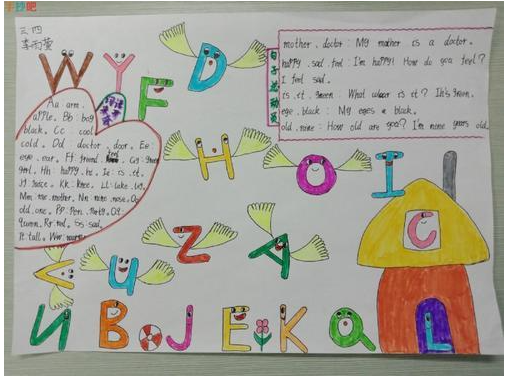 三四
W Y F D
mother. doctor: My mother is a doctor.
happy. sad. feel: I'm happy! How do you feel?
I feel sad.
is. it. green: What colour is it? It's green.
eye. black: My eyes is black.
old. nine: How old are you? I'm nine years old.
Aa arm.
apple. Bb bag
black. Cc cool
cold. Dd doctor. door. Ee
eye. ear. Ff
girl. Hh happy. he. Ie: is. it.
Jj juice. Kk: knee. Ll: lake.
Mm: me. mother. Nn nine. nose. Oo
old. one. Pp: Pen.
queen. Rr red. Ss: sad.
Tt tall. Ww:
H O I
C
Z A
V U
N B J E K Q L